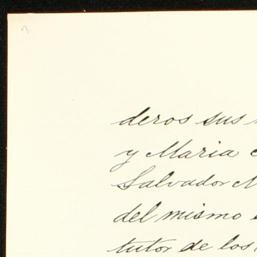 deros sus
y Maria
Salvador
del mismo
tutor de los